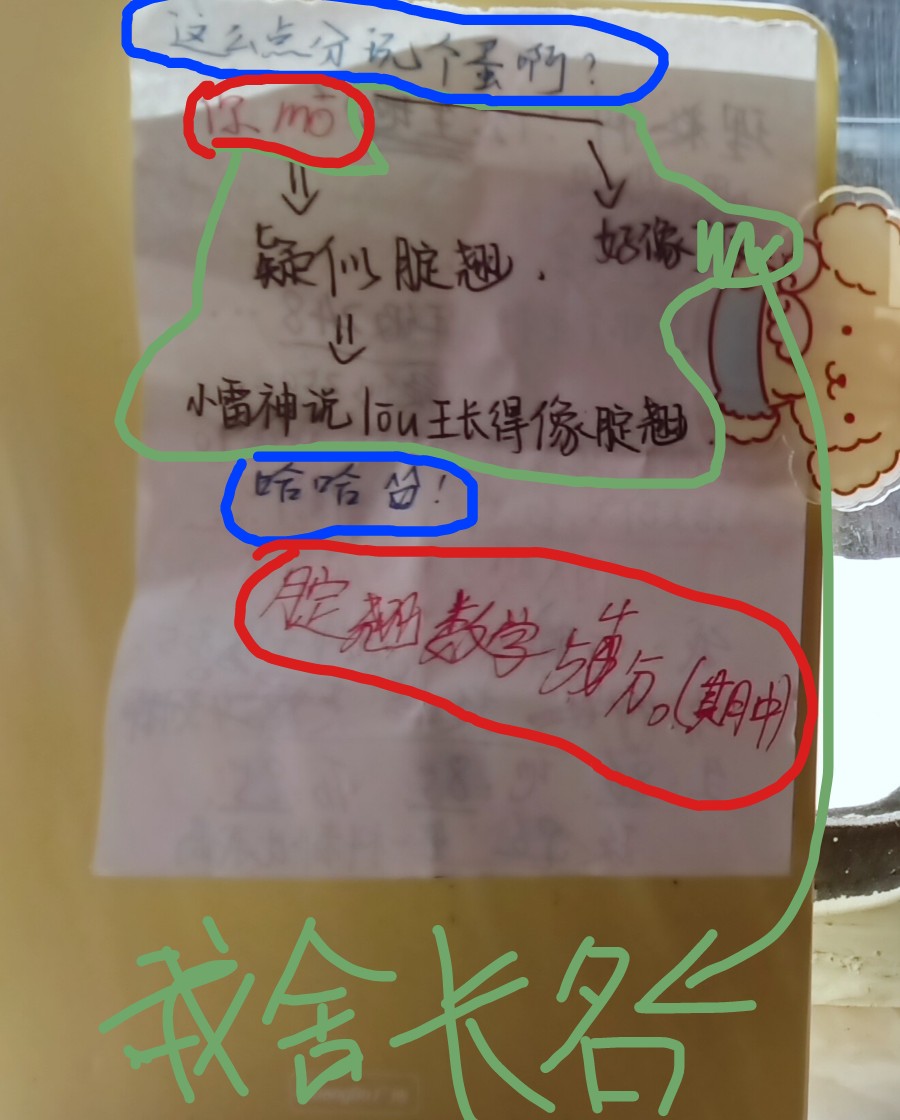 这么点分说个蛋啊？
你mā
好像
疑似腚翘.
小雷神说lōu王长得像腚翘.
哈哈
腚翘数学5分。(期中)
我舍长名